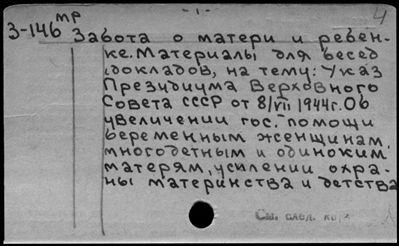 - 1 -
4
мр
3-146 Забота о матери и ребен-
ке. Материалы для бесед
, докладов, на тему: Указ
Президиума Верховного
Совета СССР от 8/VII 1944г. Об
увеличении гос. помощи
беременным женщинам,
многодетным и одиноким
матерям, усилении охра-
ны материнства и детства
См. след.